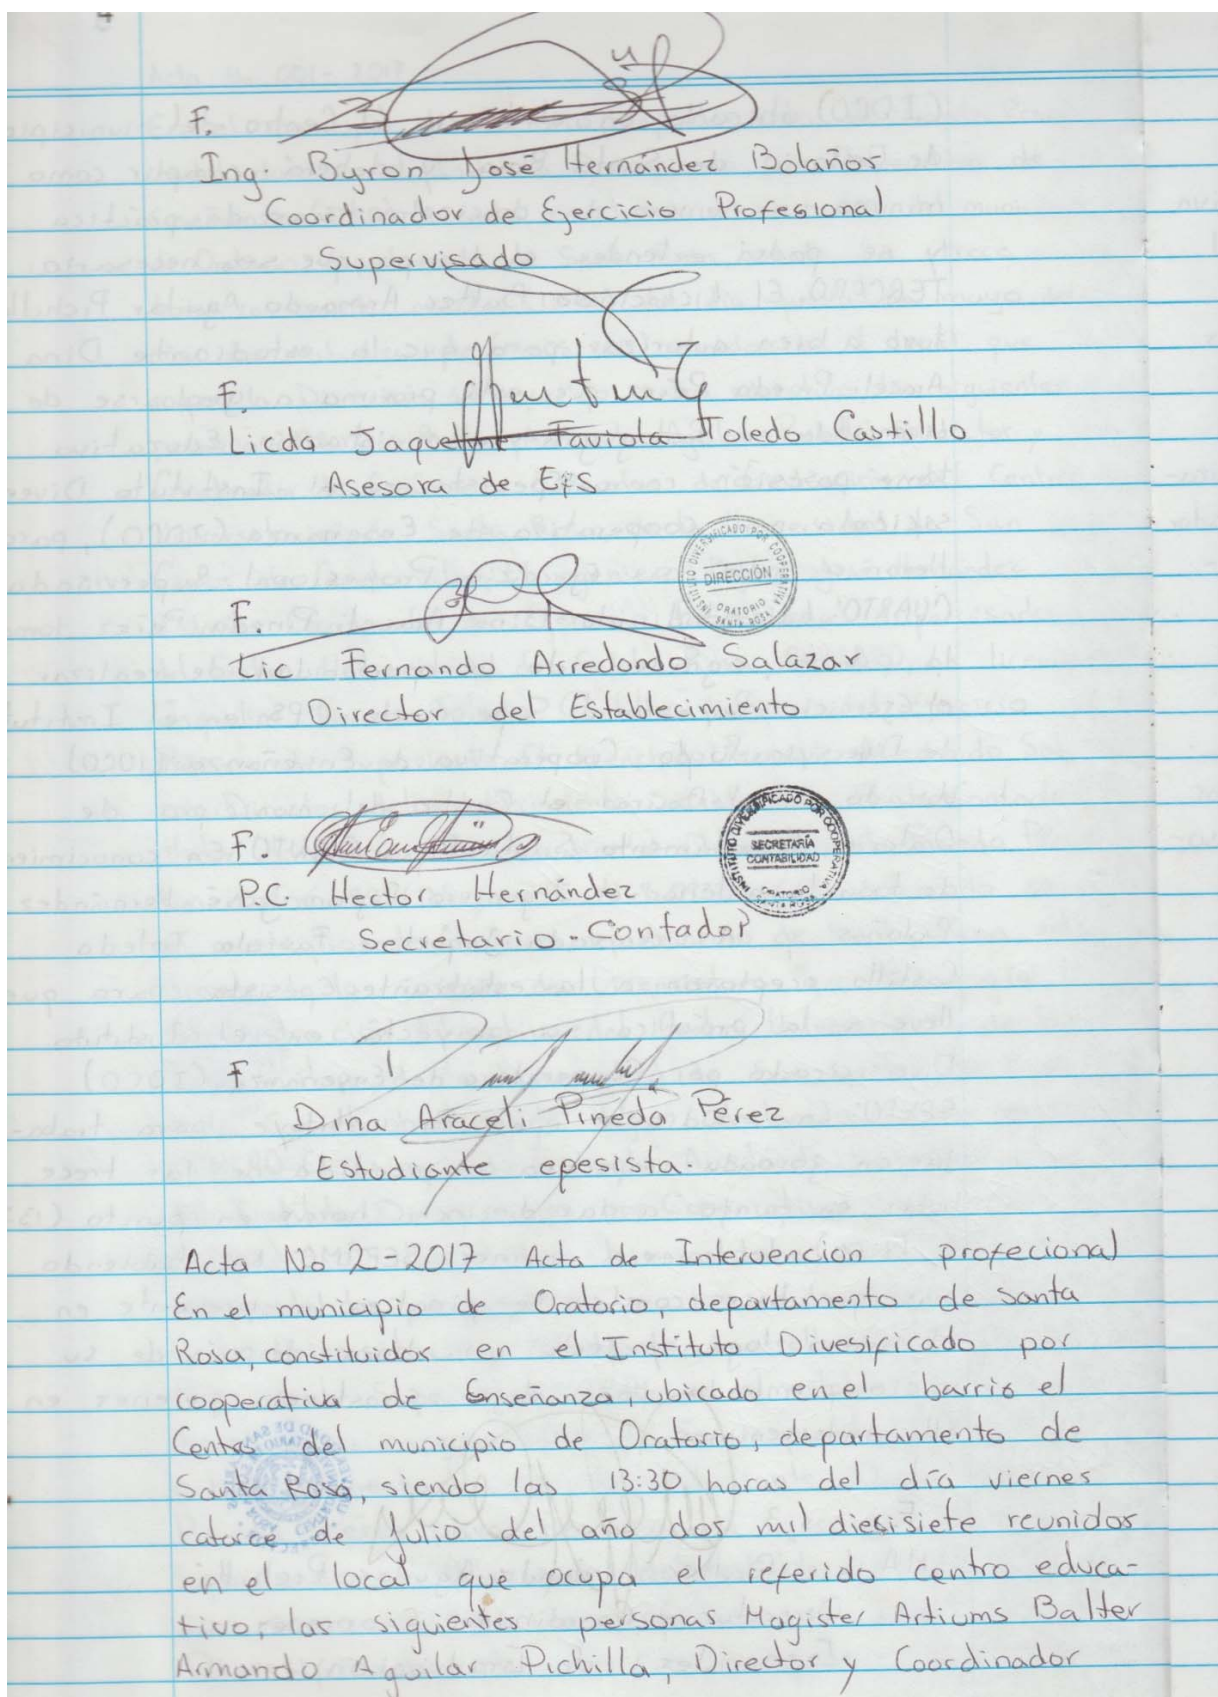 F.
Ing. Byron José Hernández Bolañor
Coordinador de Ejercicio Profesional
Supervisado
F.
Licda Jaqueline Faviola Toledo Castillo
Asesora de EPS
INSTITUTO DIVERSIFICADO POR COOPERATIVA
DIRECCIÓN
ORATORIO
SANTA ROSA
F.
Lic Fernando Arredondo Salazar
Director del Establecimiento
INSTITUTO DIVERSIFICADO POR COOPERATIVA
SECRETARÍA
CONTABILIDAD
ORATORIO
SANTA ROSA
F.
P.C. Hector Hernández
Secretario - Contador
F
Dina Araceli Pineda Pérez
Estudiante epesista.
Acta No 2-2017 Acta de Intervencion profecional
En el municipio de Oratorio, departamento de santa
Rosa, constituidos en el Instituto Divesificado por
cooperativa de Enseñanza, ubicado en el barrio el
Centro del municipio de Oratorio, departamento de
Santa Rosa, siendo las 13:30 horas del día viernes
catorce de julio del año dos mil diesisiete reunidos
en el local que ocupa el referido centro educa-
tivo, las siguientes personas Magister Artiums Balter
Armando Aguilar Pichilla, Director y Coordinador